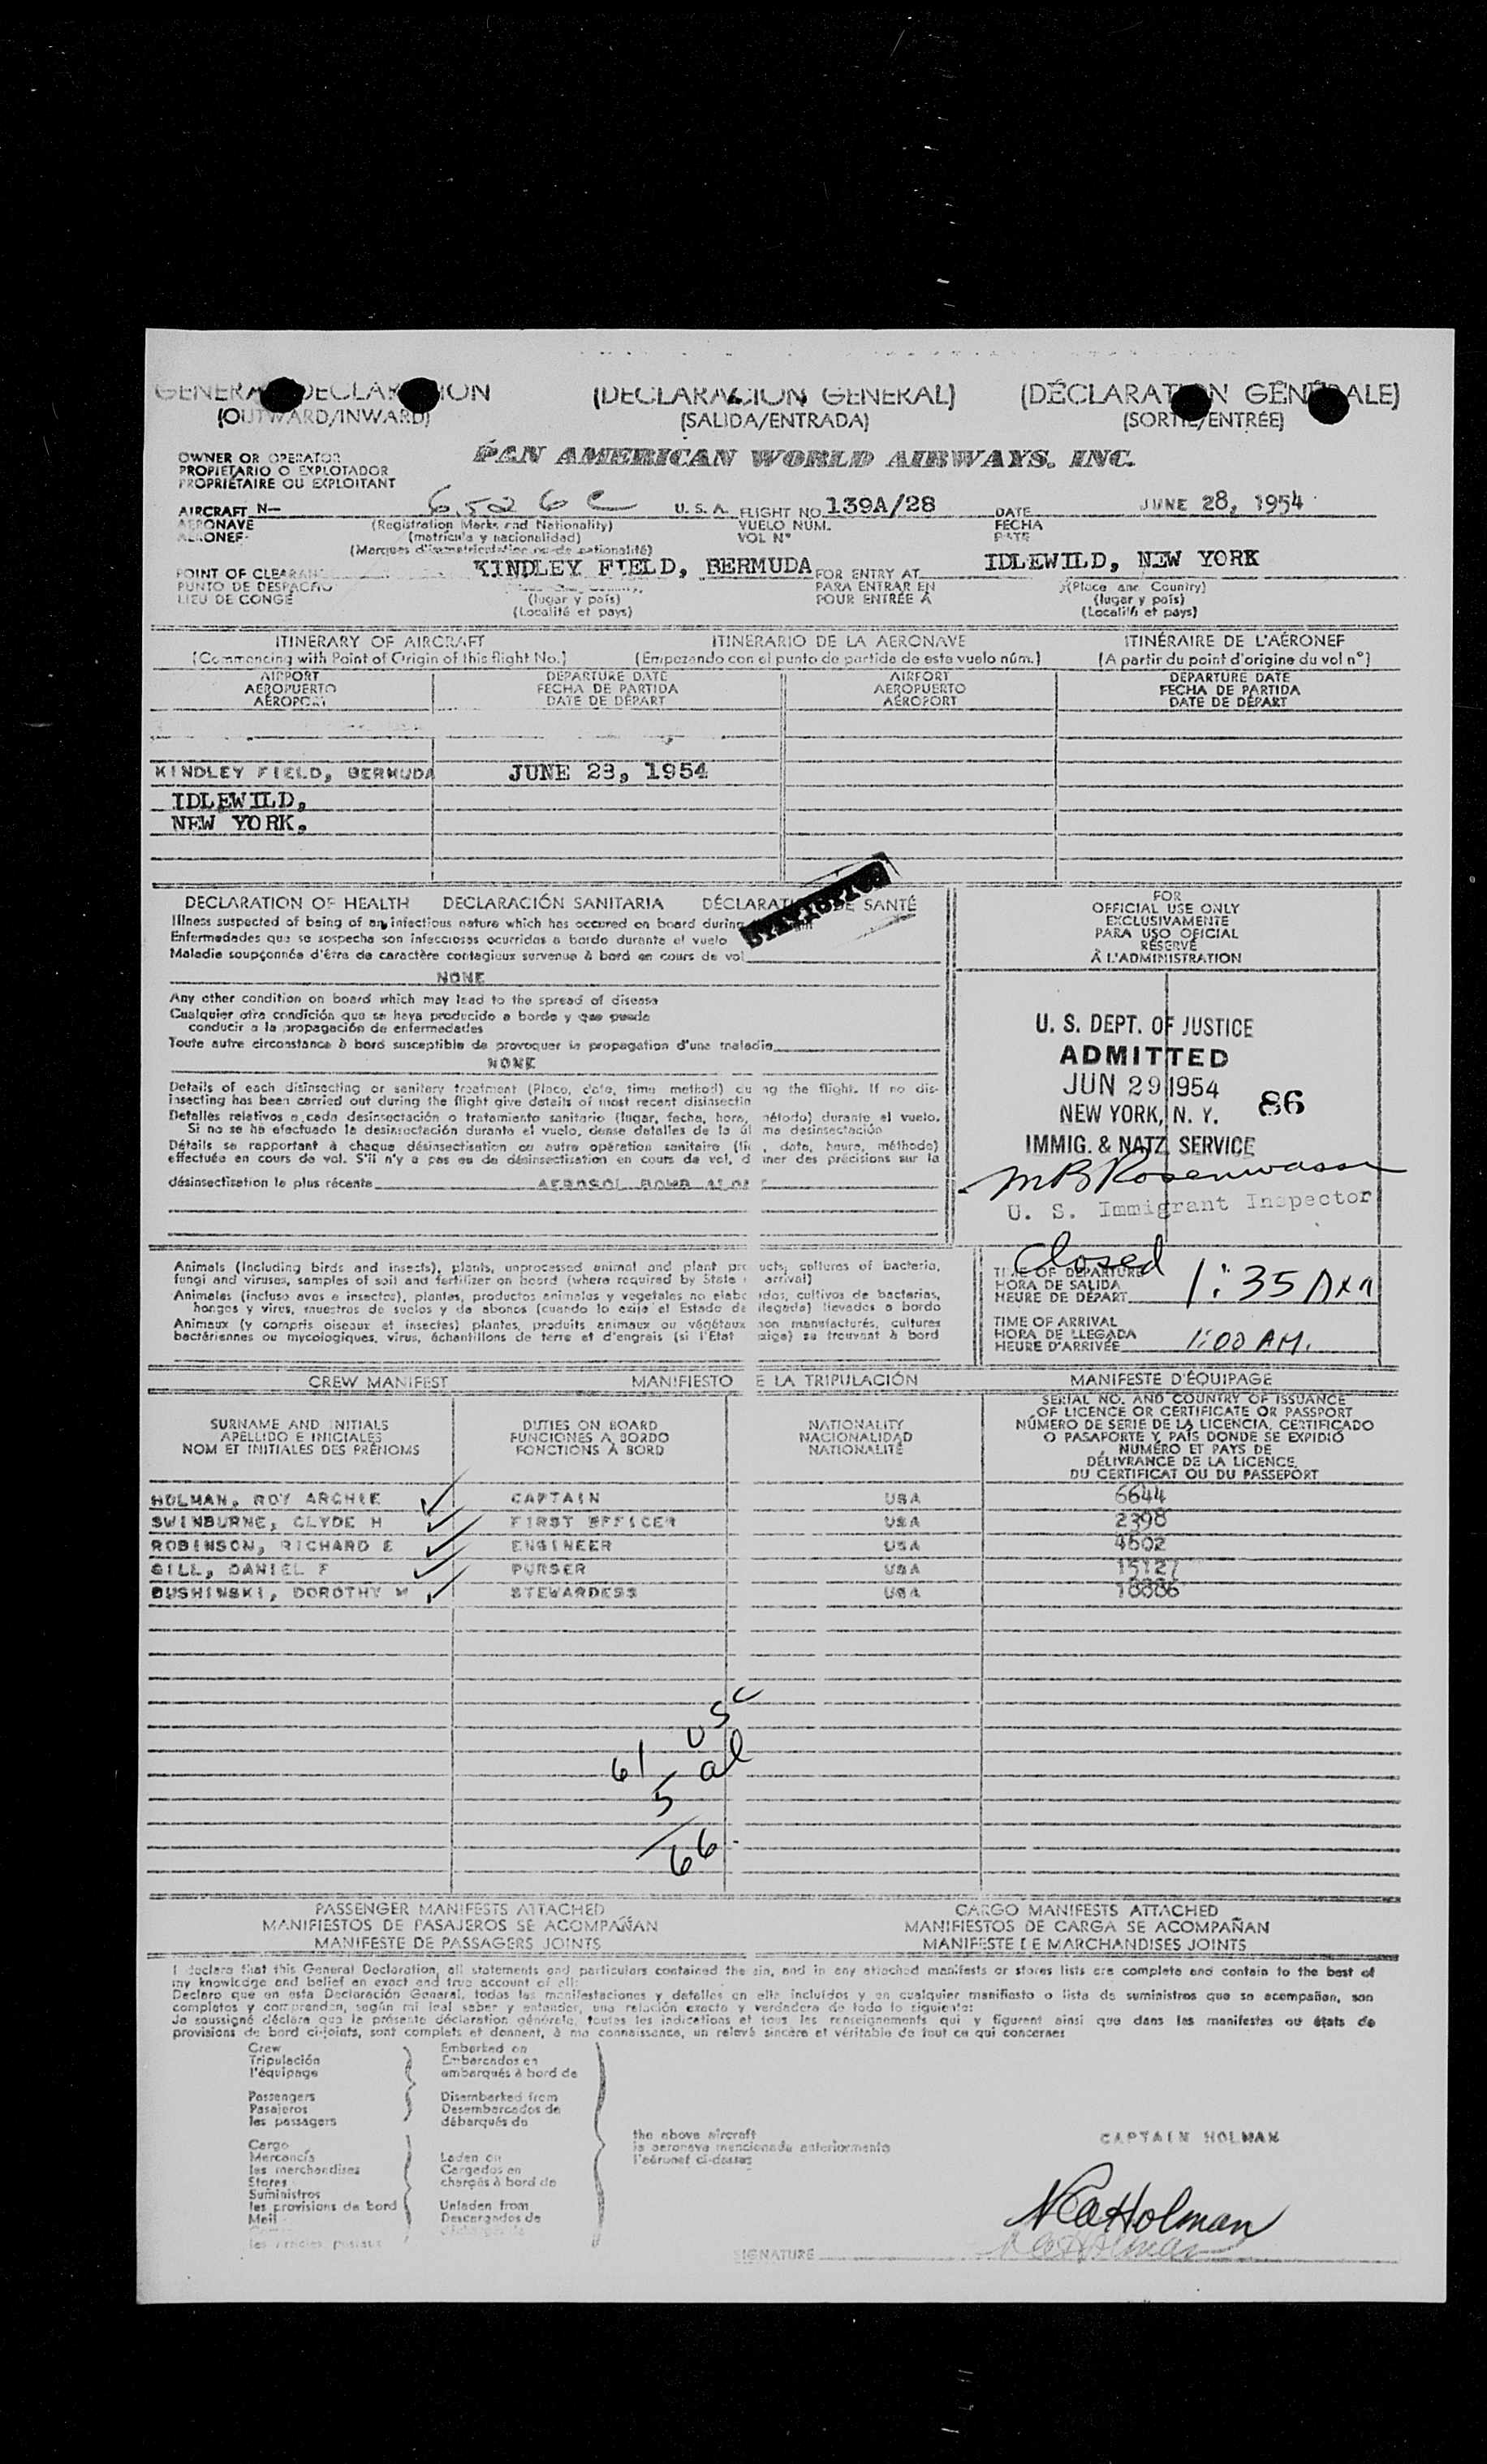 GENERAL DECLARATION (DECLARACION GENERAL) (DÉCLARATION GÉNÉRALE)
(OUTWARD/INWARD) (SALIDA/ENTRADA) (SORTIE/ENTRÉE)
OWNER OR OPERATOR
PROPIETARIO O EXPLOTADOR
PROPRIÉTAIRE OU EXPLOITANT
PAN AMERICAN WORLD AIRWAYS, INC.
AIRCRAFT N— 6526C U. S. A. FLIGHT NO. 139A/28 DATE JUNE 28, 1954
AERONAVE (Registration Marks and Nationality) VUELO NUM. FECHA
AERONEF (matrícula y nacionalidad) VOL N° DATE
(Marques d'immatriculation ou de nationalité)
POINT OF CLEARANCE KINDLEY FIELD, BERMUDA FOR ENTRY AT IDLEWILD, NEW YORK
PUNTO DE DESPACHO PARA ENTRAR EN (Place and Country)
LIEU DE CONGÉ (lugar y país) POUR ENTRÉE À (lugar y país)
(Localité et pays) (Localité et pays)
ITINERARY OF AIRCRAFT ITINERARIO DE LA AERONAVE ITINÉRAIRE DE L'AÉRONEF
(Commencing with Point of Origin of this flight No.) (Empezando con el punto de partida de este vuelo núm.) (A partir du point d'origine du vol n°)
AIRPORT DEPARTURE DATE AIRPORT DEPARTURE DATE
AEROPUERTO FECHA DE PARTIDA AEROPUERTO FECHA DE PARTIDA
AÉROPORT DATE DE DÉPART AÉROPORT DATE DE DÉPART
KINDLEY FIELD, BERMUDA JUNE 28, 1954
IDLEWILD,
NEW YORK.
DECLARATION OF HEALTH DECLARACIÓN SANITARIA DÉCLARATION DE SANTÉ
Illness suspected of being of an infectious nature which has occured on board during
Enfermedades que se sospecha son infecciosas ocurridas a bordo durante el vuelo
Maladie soupçonnée d'être de caractère contagieux survenue à bord en cours de vol
NONE
Any other condition on board which may lead to the spread of disease
Cualquier otra condición que se haya producido a bordo y que puede
conducir a la propagación de enfermedades
Toute autre circonstance à bord susceptible de provoquer la propagation d'une maladie
NONE
Details of each disinsecting or sanitary treatment (Place, date, time method) du ng the flight. If no dis-
insecting has been carried out during the flight give details of most recent disinsectin
Detalles relativos a cada desinsectación o tratamiento sanitario (lugar, fecha, hora, método) durante el vuelo.
Si no se ha efectuado la desinsectación durante el vuelo, dense detalles de la úl ma desinsectación
Détails se rapportant à chaque désinsectisation ou autre opération sanitaire (lie , date, heure, méthode)
effectuée en cours de vol. S'il n'y a pas eu de désinsectisation en cours de vol, d nner des précisions sur la
désinsectisation la plus récente AEROSOL BOMB
FOR
OFFICIAL USE ONLY
EXCLUSIVAMENTE
PARA USO OFICIAL
RÉSERVÉ
À L'ADMINISTRATION
U. S. DEPT. OF JUSTICE
ADMITTED
JUN 29 1954
NEW YORK, N. Y. 86
IMMIG. & NATZ. SERVICE
M B Rosenwasser
U. S. Immigrant Inspector
Animals (Including birds and insects), plants, unprocessed animal and plant pro ucts, cultures of bacteria,
fungi and viruses, samples of soil and fertilizer on board (where required by State arrival)
Animales (incluso aves e insectos), plantas, productos animales y vegetales no elabc idos, cultivos de bacterias,
hongos y virus, muestras de suelos y de abonos (cuando lo exija el Estado de llegada) llevados a bordo
Animaux (y compris oiseaux et insectes) plantes, produits animaux ou végétaux non manufacturés, cultures
bactériennes ou mycologiques, virus, échantillons de terre et d'engrais (si l'Etat exige) se trouvant à bord
Closed
TIME OF DEPARTURE
HORA DE SALIDA
HEURE DE DÉPART 1:35 AM
TIME OF ARRIVAL
HORA DE LLEGADA
HEURE D'ARRIVÉE 1:00 AM.
CREW MANIFEST MANIFIESTO E LA TRIPULACIÓN MANIFESTE D'ÉQUIPAGE
SURNAME AND INITIALS
APELLIDO E INICIALES
NOM ET INITIALES DES PRÉNOMS
DUTIES ON BOARD
FUNCIONES A BORDO
FONCTIONS À BORD
NATIONALITY
NACIONALIDAD
NATIONALITÉ
SERIAL NO. AND COUNTRY OF ISSUANCE
OF LICENCE OR CERTIFICATE OR PASSPORT
NÚMERO DE SERIE DE LA LICENCIA, CERTIFICADO
O PASAPORTE Y PAÍS DONDE SE EXPIDIÓ
NUMÉRO ET PAYS DE
DÉLIVRANCE DE LA LICENCE,
DU CERTIFICAT OU DU PASSEPORT
HOLMAN, ROY ARCHIE CAPTAIN USA 6644
SWINBURNE, CLYDE H FIRST OFFICER USA 2398
ROBINSON, RICHARD E ENGINEER USA 4602
GILL, DANIEL F PURSER USA 15127
BUSHINSKI, DOROTHY M STEWARDESS USA 18886
61 USC
5 al
66
PASSENGER MANIFESTS ATTACHED CARGO MANIFESTS ATTACHED
MANIFIESTOS DE PASAJEROS SE ACOMPAÑAN MANIFIESTOS DE CARGA SE ACOMPAÑAN
MANIFESTE DE PASSAGERS JOINTS MANIFESTE DE MARCHANDISES JOINTS
I declare that this General Declaration, all statements and particulars contained the ein, and in any attached manifests or stores lists are complete and contain to the best of
my knowledge and belief an exact and true account of all:
Declaro que en esta Declaración General, todas las manifestaciones y detalles en ella incluídos y en cualquier manifiesto o lista de suministros que se acompañan, son
completos y comprenden, según mi leal saber y entender, una relación exacta y verdadera de todo lo siguiente:
Je soussigné déclare que la présente déclaration générale, toutes les indications et tous les renseignements qui y figurent ainsi que dans les manifestes ou états de
provisions de bord ci-joints, sont complets et donnent, à ma connaissance, un relevé sincère et véritable de tout ce qui concerne:
Crew Embarked on
Tripulación Embarcados en
l'équipage embarqués à bord de
Passengers Disembarked from
Pasajeros Desembarcados de
les passagers débarqués de
the above aircraft
la aeronave mencionada anteriormente
l'aéronef ci-dessus
CAPTAIN HOLMAN
Cargo
Mercancía Laden on
les merchandises Cargados en
Stores chargés à bord de
Suministros
les provisions de bord Unladen from
Mail Descargados de
les articles postaux
R A Holman
SIGNATURE R A Holman